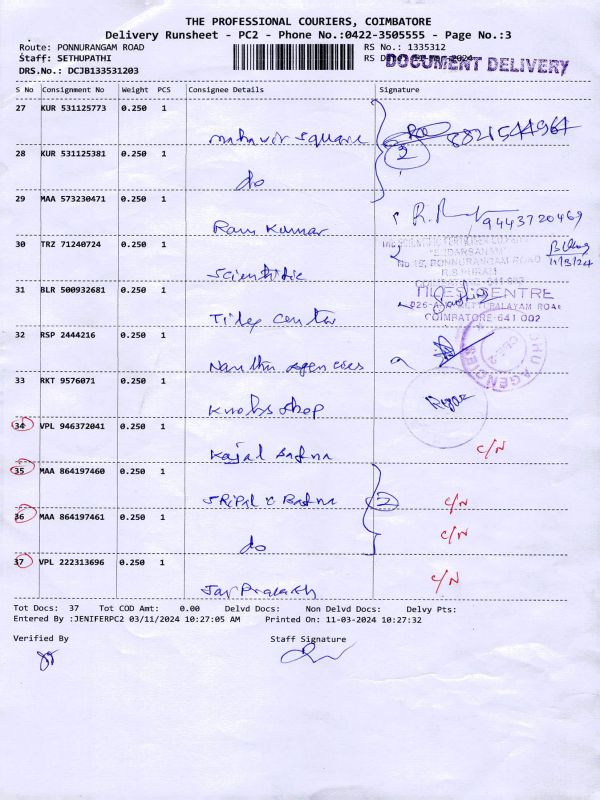 THE PROFESSIONAL COURIERS, COIMBATORE
Delivery Runsheet - PC2 - Phone No.:0422-3505555 - Page No.:3
Route: PONNURANGAM ROAD RS No.: 1335312
Staff: SETHUPATHI RS Date: 11-Mar-2024
DOCUMENT DELIVERY
DRS.No.: DCJB133531203
S No Consignment No Weight PCS Consignee Details Signature
27 KUR 531125773 0.250 1
mahavir square 8821544967
28 KUR 531125381 0.250 1 2
do
29 MAA 573230471 0.250 1 R.
Ram Kumar 9443720469
30 TRZ 71240724 0.250 1
"SUDARSANAM"
No.16, PONNURANGAM ROAD 11/3/24
Scientific R.S PURAM
31 BLR 500932681 0.250 1 TILES CENTRE
Tiles center COIMBATORE-641 002
32 RSP 2444216 0.250 1
Nanthu Agencies AGENCIES CBE-2
33 RKT 9576071 0.250 1
Knobs shop
34 VPL 946372041 0.250 1 C/N
Kajal Bafna
35 MAA 864197460 0.250 1
Sripal c Bafna 2 C/N
36 MAA 864197461 0.250 1 C/N
do
37 VPL 222313696 0.250 1 C/N
Jay Prakash
Tot Docs: 37 Tot COD Amt: 0.00 Delvd Docs: Non Delvd Docs: Delvy Pts:
Entered By :JENIFERPC2 03/11/2024 10:27:05 AM Printed On: 11-03-2024 10:27:32
Verified By Staff Signature